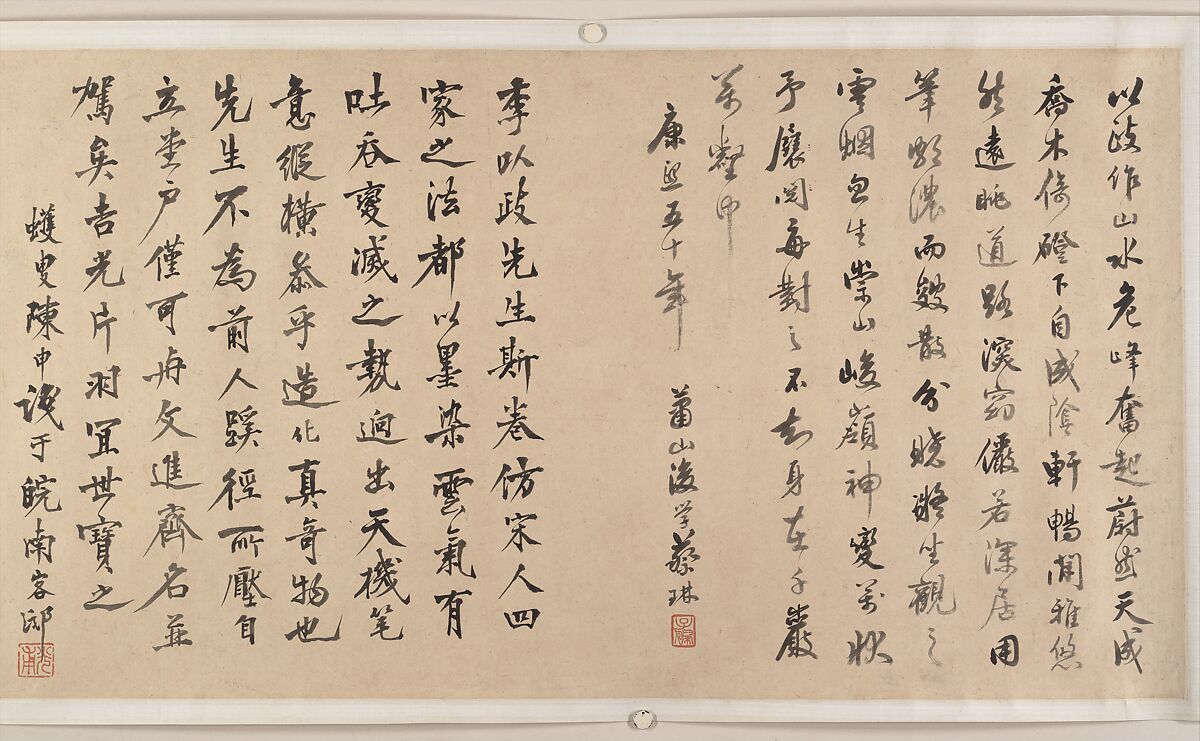 以政作山水危峰奮起蔚然天成
喬木倚磴下自成陰軒暢閒雅悠
然遠眺道路深窈儼若深居用
筆頗濃而皴散分曉將坐觀之
雲烟忽生崇山峻嶺神變萬狀
予展閱每對之不知身在千巖
萬壑中
康熙五十年 蕭山後學蔡琳
季以政先生斯卷仿宋人四
家之法都以墨染雲氣有
吐吞變滅之勢迥出天機笔
意縱橫參乎造化真奇物也
先生不為前人蹊徑所壓自
立堂戶僅可與文進齊名並
駕矣吉光片羽宜世寶之
蠖叟陳申識于皖南客邸